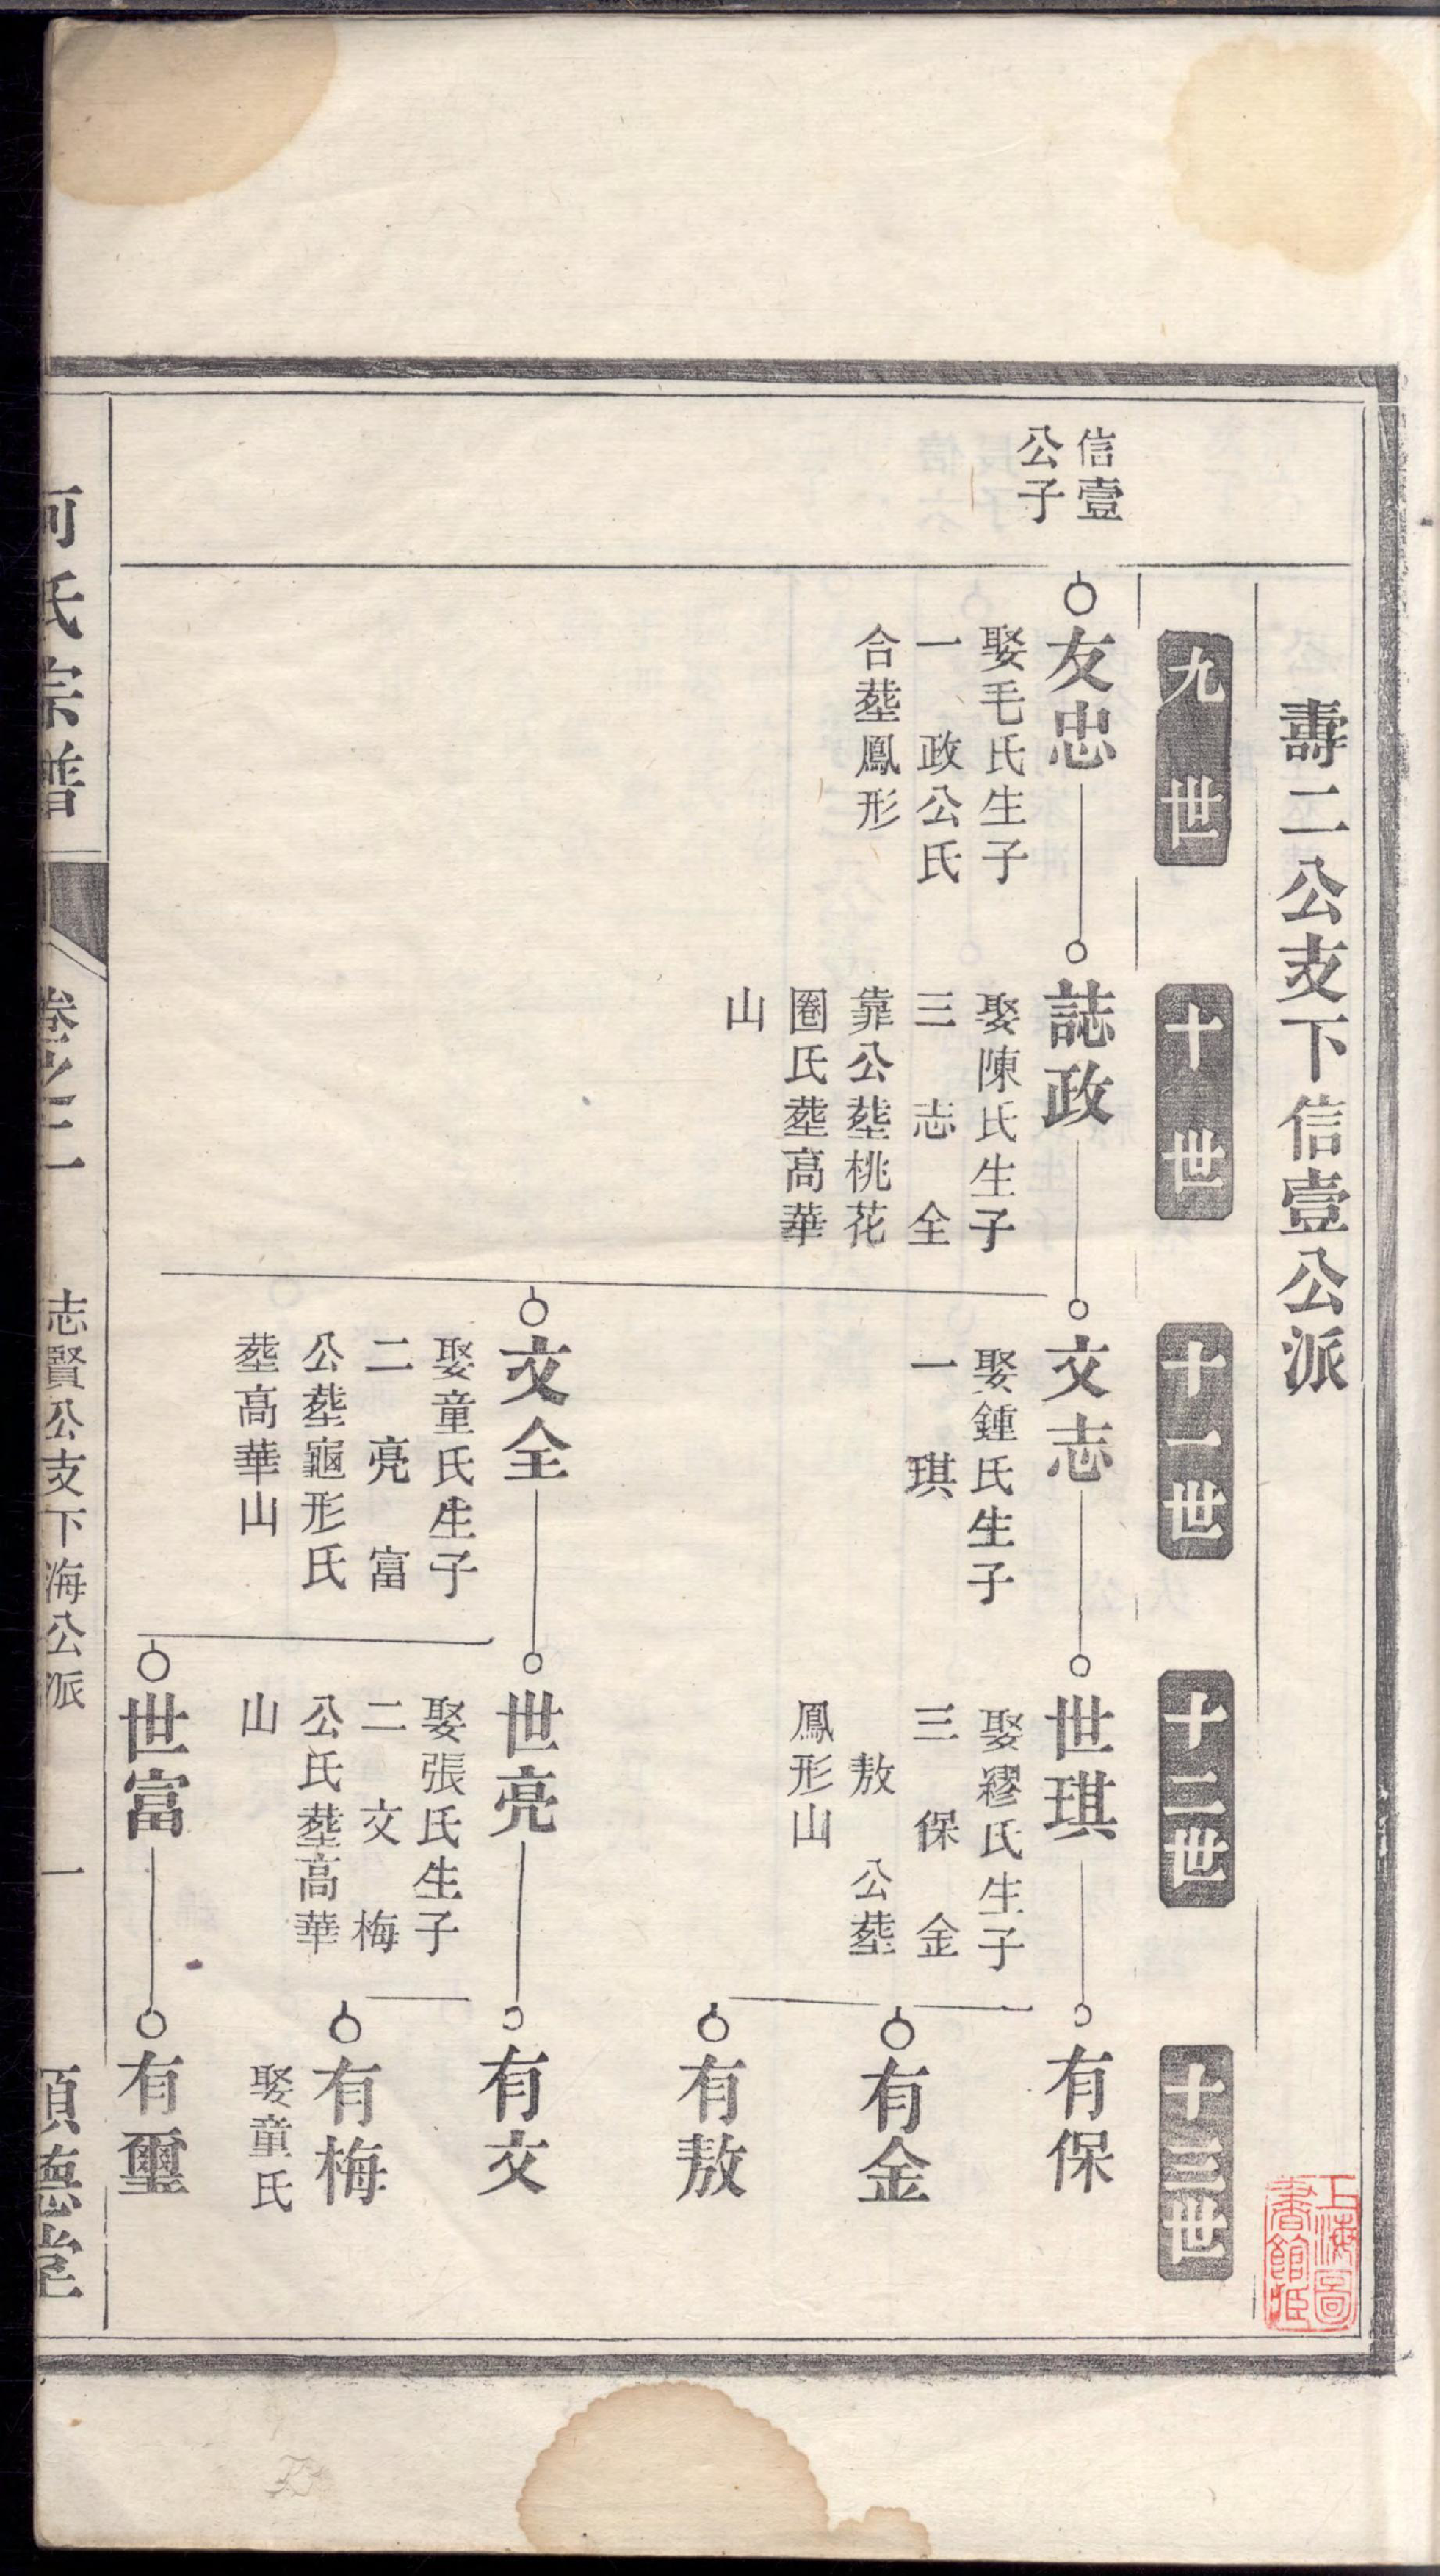 壽二公支下信壹公派
九世
十世
十一世
十二世
十三世
信壹
公子
友忠
娶毛氏生子
一 政公氏
合塟鳳形
誌政
娶陳氏生子
三 志 全
靠公塟桃花
圈氏塟高華
山
文志
娶鍾氏生子
一 琪
世琪
娶繆氏生子
三 保 金
敖 公塟
鳳形山
有保
有金
有敖
文全
娶童氏生子
二 亮 富
公塟龜形氏
塟高華山
世亮
娶張氏生子
二 文 梅
公氏塟高華
山
有文
有梅
娶童氏
世富
有璽
河氏宗譜
卷之二
志賢公支下海公派
一
須德堂
上海圖
書館藏